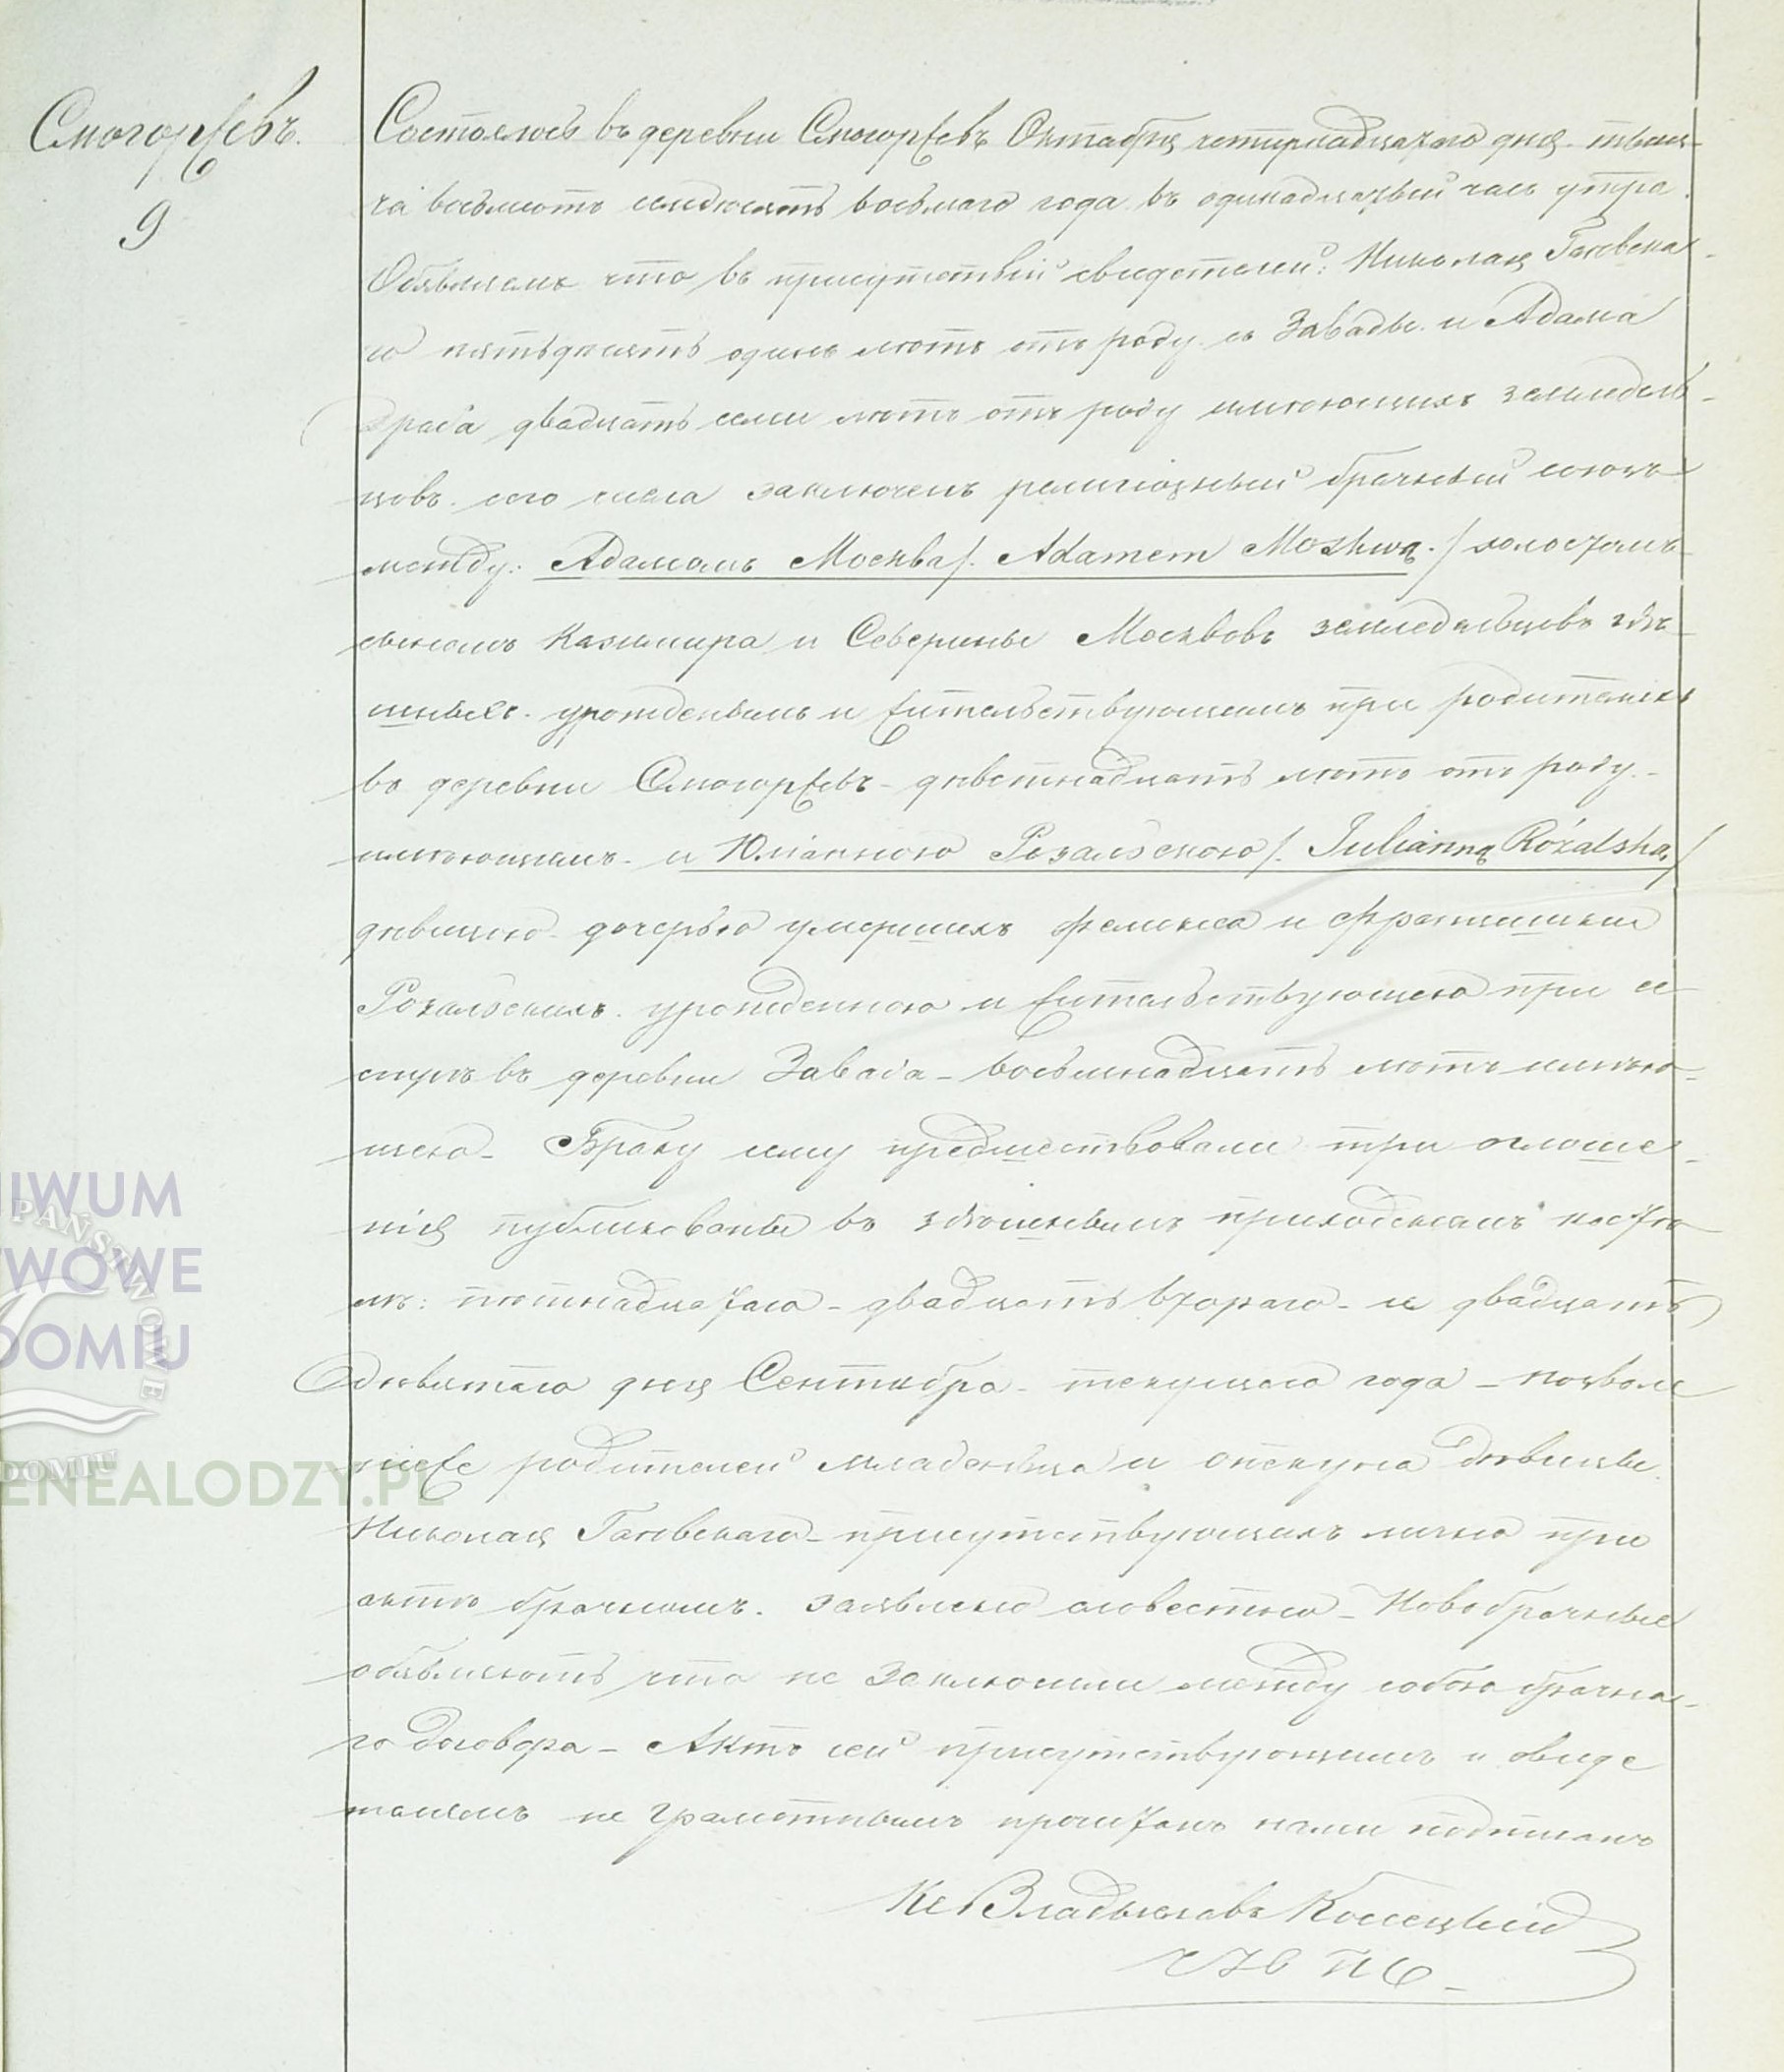 Смогоржевъ.
9
Состоялось въ деревни Смогоржевъ Октября четырнадцатого дня тыся-
ча восѣмсотъ семдюсятъ восьмаго года въ одинадцатый часъ утра.
Объявляемъ что въ присутствiи свидетелей: Николая Гаевска-
го пятьдюсятъ одинъ лютъ отъ роду съ Завады и Адама
двадцать семи лютъ отъ роду имюющихъ земледѣль-
цовъ сего числа заключенъ религiозный брачный союзъ
между: Адамомъ Москва /. Adamem Moskwą ./ холостымъ
сыномъ Казимира и Северины Москвовъ земледѣльцовъ здю-
шныхъ. урожденнымъ и жительствующимъ при родителяхъ
въ деревни Смогоржевъ - дюветнадцать лютъ отъ роду
имюющимъ - и Юлiанною Розальскою /. Julianną Rózalską /
дювицею дочерью умершихъ Феликса и Францишки
Розальскихъ урожденною и жительствующею при се
стрю въ деревни Завада - восьмнадцать лютъ имюю-
щею - Браку сему предшествовали три оглоше-
нiя публикованы въ здюшнымъ приходскомъ костю-
лю: пятнадцатаго - двадцать втораго - и двадцать
дювятаго дня Сентября - текущаго года - позволе
нiе родителей младенца и опекуна дювицы
Николая Гаевскаго - присутствующихъ лично при
актю брачномъ. заявлено словестно - Новобрачные
объявляютъ что не заключили между собою брачна-
го договора - Актъ сей присутствующимъ и свиде
телямъ не грамотнымъ прочитанъ нами подписанъ
Кс Владыславъ